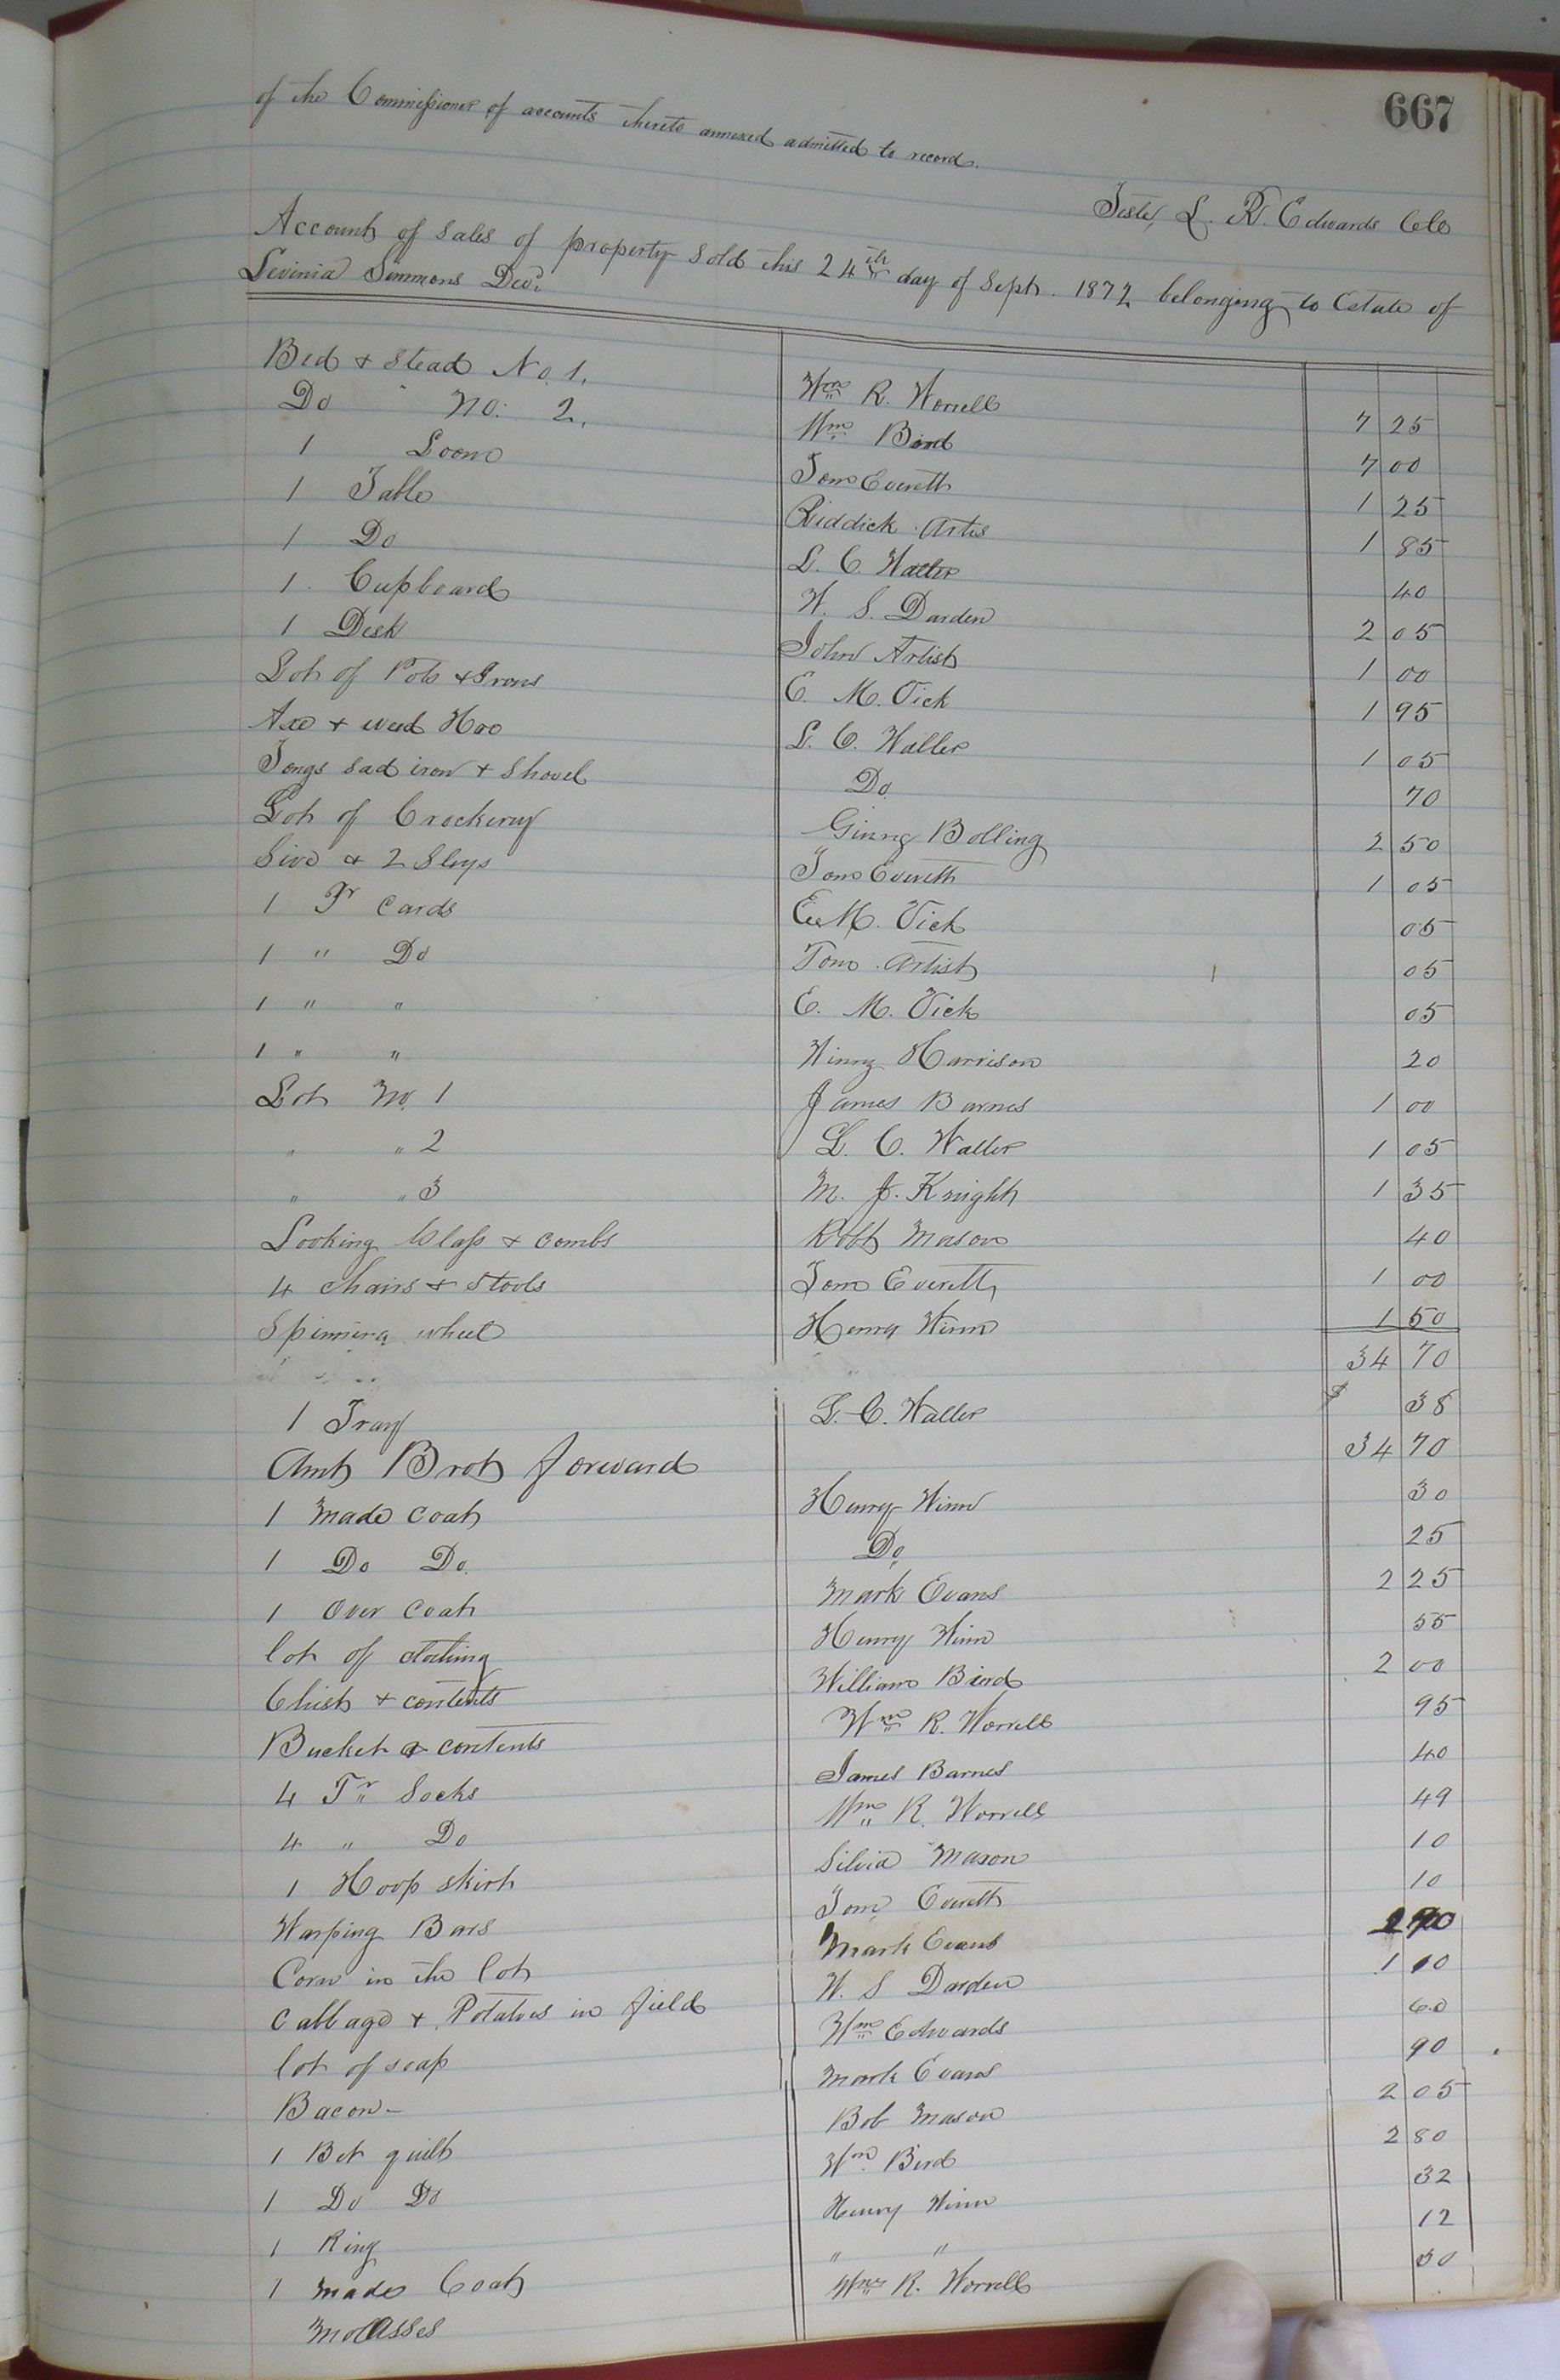 667
of the Commissioner of accounts thereto annexed admitted to record.
Teste, L. R. Edwards Clk
Account of Sales of property Sold this 24th day of Sept. 1872 belonging to Estate of
Levinia Simmons Decd.
Bed & Stead No. 1. Wm R. Worrell 7 25
Do No. 2. Wm Bird 7 00
1 Loom Tom Everett 1 25
1 Table Riddick Artis 1 85
1 Do L. C. Waller 40
1 Cupboard W. S. Darden 2 05
1 Desk John Artist 1 00
Lot of Pots & Irons E. M. Vick 1 95
Axe & weed Hoe L. C. Waller 1 05
Tongs sad iron & Shovel Do 70
Lot of Crockery Ginny Bolling 2 50
Sive & 2 Slays Tom Everett 1 05
1 Pr Cards E. M. Vick 05
1 " Do Tom Artist 05
1 " " E. M. Vick 05
1 " " Harrison 20
Lot No. 1 James Barnes 1 00
" " 2 L. C. Waller 1 05
" " 3 M. J. Knight 1 35
Looking Glass & combs Robt Mason 40
4 Chairs & Stools Tom Everett 1 00
Spinning wheel Henry Winn 1 50
34 70
1 Tray L. C. Waller $ 38
Amt Brot forward 34 70
1 made coat Henry Winn 30
1 Do Do Do 25
1 Over Coat Mark Evans 2 25
lot of clothing Henry Winn 55
Chist & contents William Bird 2 00
Bucket & contents Wm R. Worrell 95
4 Pr Socks James Barnes 40
4 " Do Wm R. Worrell 49
1 Hoop skirt Silvia Mason 10
Warping Bars Tom Everett 10
Corn in the lot Mark Evans
Cabbage & Potatoes in field W. S Darden 1 10
lot of soap Wm Edwards 60
Bacon Mark Evans 90
1 Bet quilt Bob Mason 2 05
1 Do Do Wm Bird 2 80
1 Ring Henry Winn 32
1 made Coat " " 12
Molasses Wm R. Worrell 50